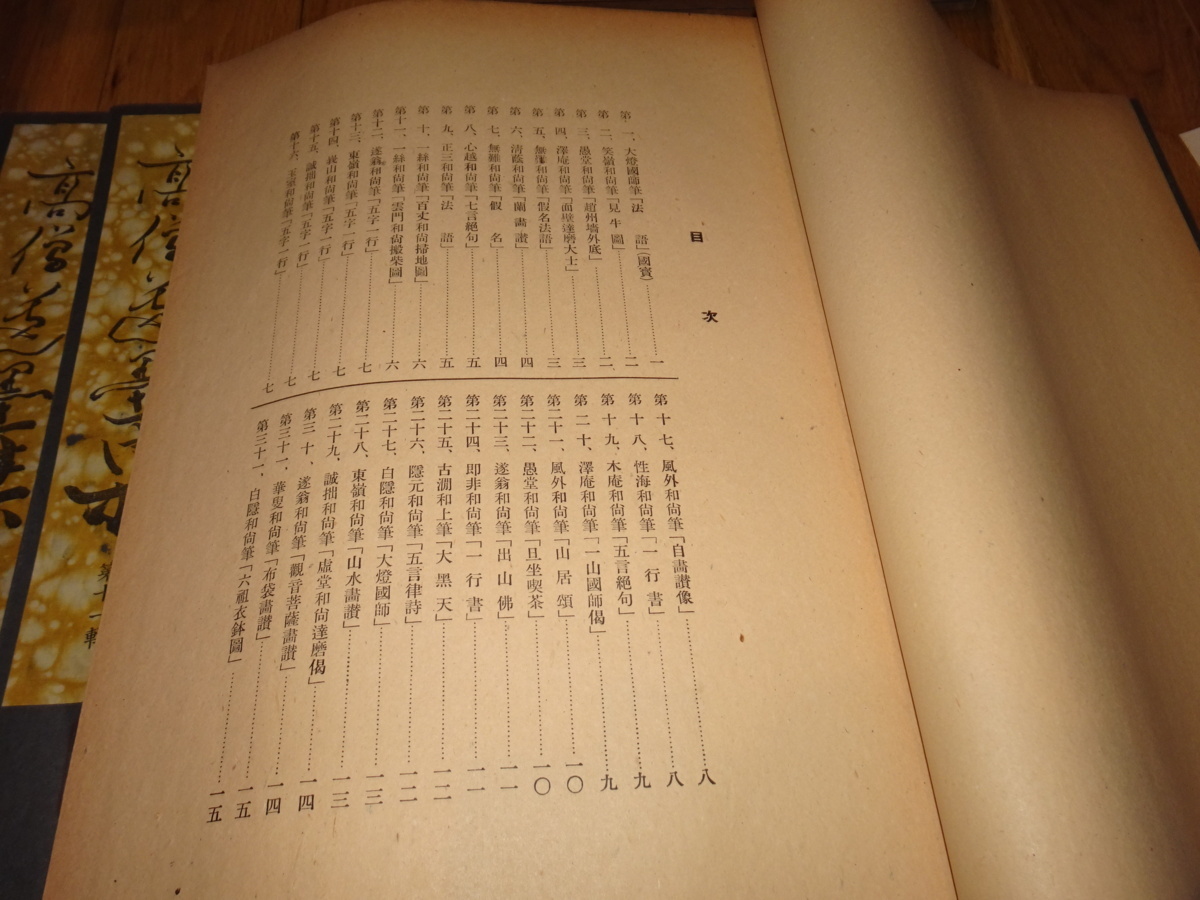 目次
第一、大燈國師筆「法語」(國寶)……一
第二、笑嶺和尙筆「見牛圖」……二
第三、愚堂和尙筆「趙州墻外底」……二
第四、澤庵和尙筆「面壁達磨大士」……三
第五、無難和尙筆「假名法語」……三
第六、淸巖和尙筆「蘭畵讃」……四
第七、無難和尙筆「假名」……四
第八、心越和尙筆「七言絕句」……五
第九、正三和尙筆「法語」……五
第十、一絲和尙筆「百丈和尙掃地圖」……六
第十一、一絲和尙筆「雲門和尙搬柴圖」……六
第十二、遂翁和尙筆「五字一行」……七
第十三、東嶺和尙筆「五字一行」……七
第十四、峩山和尙筆「五字一行」……七
第十五、誠拙和尙筆「五字一行」……七
第十六、玉室和尙筆「五字一行」……七
第十七、風外和尙筆「自畵讃像」……八
第十八、性海和尙筆「一行書」……八
第十九、木庵和尙筆「五言絕句」……九
第二十、澤庵和尙筆「一山國師偈」……九
第二十一、風外和尙筆「山居頌」……一〇
第二十二、愚堂和尙筆「且坐喫茶」……一〇
第二十三、遂翁和尙筆「出山佛」……一一
第二十四、即非和尙筆「一行書」……一一
第二十五、古澗和上筆「大黑天」……一二
第二十六、隱元和尙筆「五言律詩」……一二
第二十七、白隱和尙筆「大燈國師」……一三
第二十八、東嶺和尙筆「山水畵讃」……一三
第二十九、誠拙和尙筆「虛堂和尙達磨偈」……一四
第三十、遂翁和尙筆「觀音菩薩畵讃」……一四
第三十一、華叟和尙筆「布袋畵讃」……一五
第三十一、白隱和尙筆「六祖衣鉢圖」……一五
高僧遺墨
第十一輯
高僧遺墨